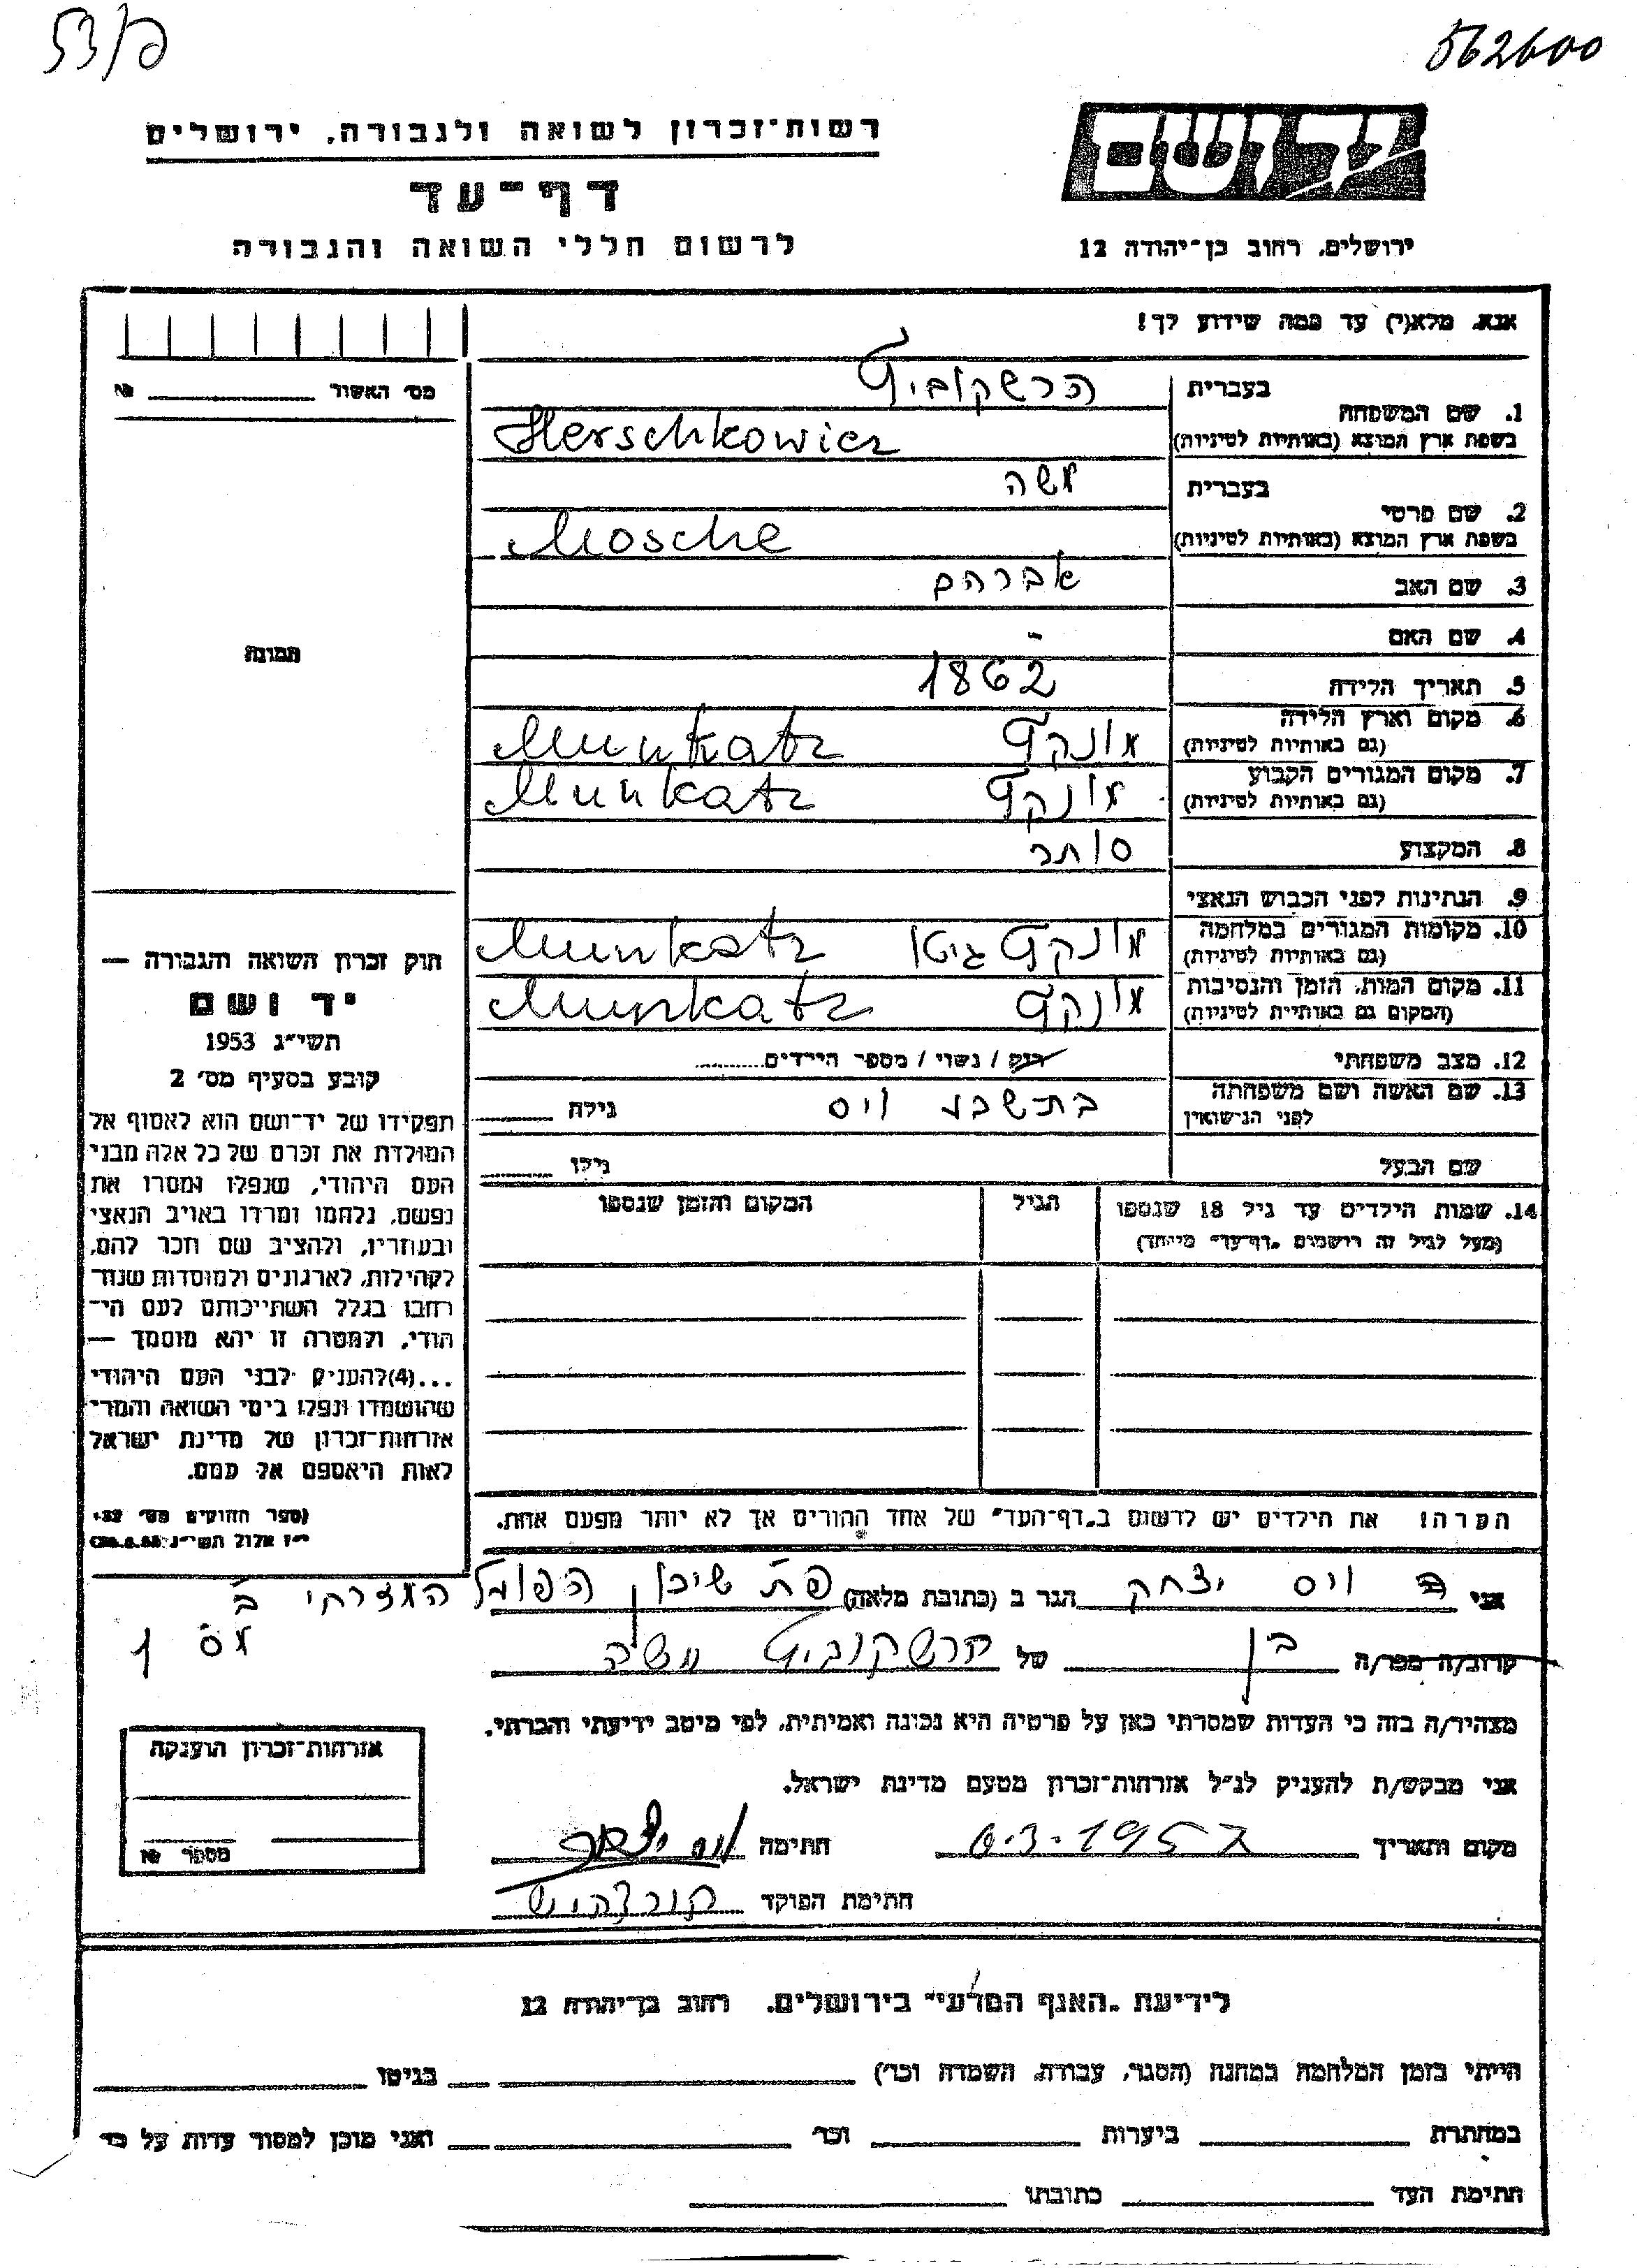 53/פ
562600
רשות־זכרון לשואה ולגבורה, ירושלים
יד ושם
דף־עד
ירושלים, רחוב בן־יהודה 12
לרשום חללי השואה והגבורה
אנא, מלא(י) עד כמה שידוע לך!
מס׳ האשור № 
בעברית הרשקוביץ
1. שם המשפחה
בשפת ארץ המוצא (באותיות לטיניות) Herschkowicz
בעברית משה
2. שם פרטי
בשפת ארץ המוצא (באותיות לטיניות) Mosche
3. שם האב אברהם
4. שם האם -
תמונה
5. תאריך הלידה 1862
6. מקום וארץ הלידה מונקץ Munkatz
(גם באותיות לטיניות)
7. מקום המגורים הקבוע מונקץ Munkatz
(גם באותיות לטיניות)
8. המקצוע סוחר
9. הנתינות לפני הכבוש הנאצי
10. מקומות המגורים במלחמה מונקץ גיטו Munkatz
(גם באותיות לטיניות)
11. מקום המות, הזמן והנסיבות מונקץ Munkatz
(המקום גם באותיית לטיניות)
12. מצב משפחתי רוק / נשוי / מספר הילדים
13. שם האשה ושם משפחתה בת שבע ויס גילה
לפני הנישואין
שם הבעל גילו
14. שמות הילדים עד גיל 18 שנספו הגיל המקום והזמן שנספו
(מעל לגיל זה רושמים „דף־עד״ מיוחד)
חוק זכרון השואה והגבורה —
יד ושם
תשי״ג 1953
קובע בסעיף מס׳ 2
תפקידו של יד־ושם הוא לאסוף אל
המולדת את זכרם של כל אלה מבני
העם היהודי, שנפלו ומסרו את
נפשם, נלחמו ומרדו באויב הנאצי
ובעוזריו, ולהציב שם וזכר להם,
לקהילות, לארגונים ולמוסדות שנח־
רחבו בגלל השתייכותם לעם הי־
הודי, ולמטרה זו יהא מוסמך —
...(4) להעניק לבני העם היהודי
שהושמדו ונפלו בימי השואה והמרי
אזרחות־זכרון של מדינת ישראל
לאות היאספם אל עמם.
(ספר החוקים מס׳ 132
י״ז אלול תשי״ג 28.8.53)
הערה! את הילדים יש לרשום ב„דף־העד״ של אחד ההורים אך לא יותר מפעם אחת.
אני ויס יצחק הגר ב (כתובת מלאה) פת שיכון הפועל המזרחי ב
מס 1
קרוב/ה מכר/ה בן של הרשקוביץ משה
מצהיר/ה בזה כי העדות שמסרתי כאן על פרטיה היא נכונה ואמיתית, לפי מיטב ידיעתי והכרתי.
אני מבקש/ת להעניק לנ״ל אזרחות־זכרון מטעם מדינת ישראל.
אזרחות־זכרון הוענקה
מספר №
מקום ותאריך 6.3.1957 חתימה ויס יצחק
חתימת הפוקד
לידיעת „האגף המדעי״ בירושלים, רחוב בן־יהודה 12
הייתי בזמן המלחמה במחנה (הסגר, עבודה, השמדה וכד׳) בגיטו
במחתרת ביערות וכד׳ ואני מוכן למסור עדות על כך
חתימת העד כתובתו